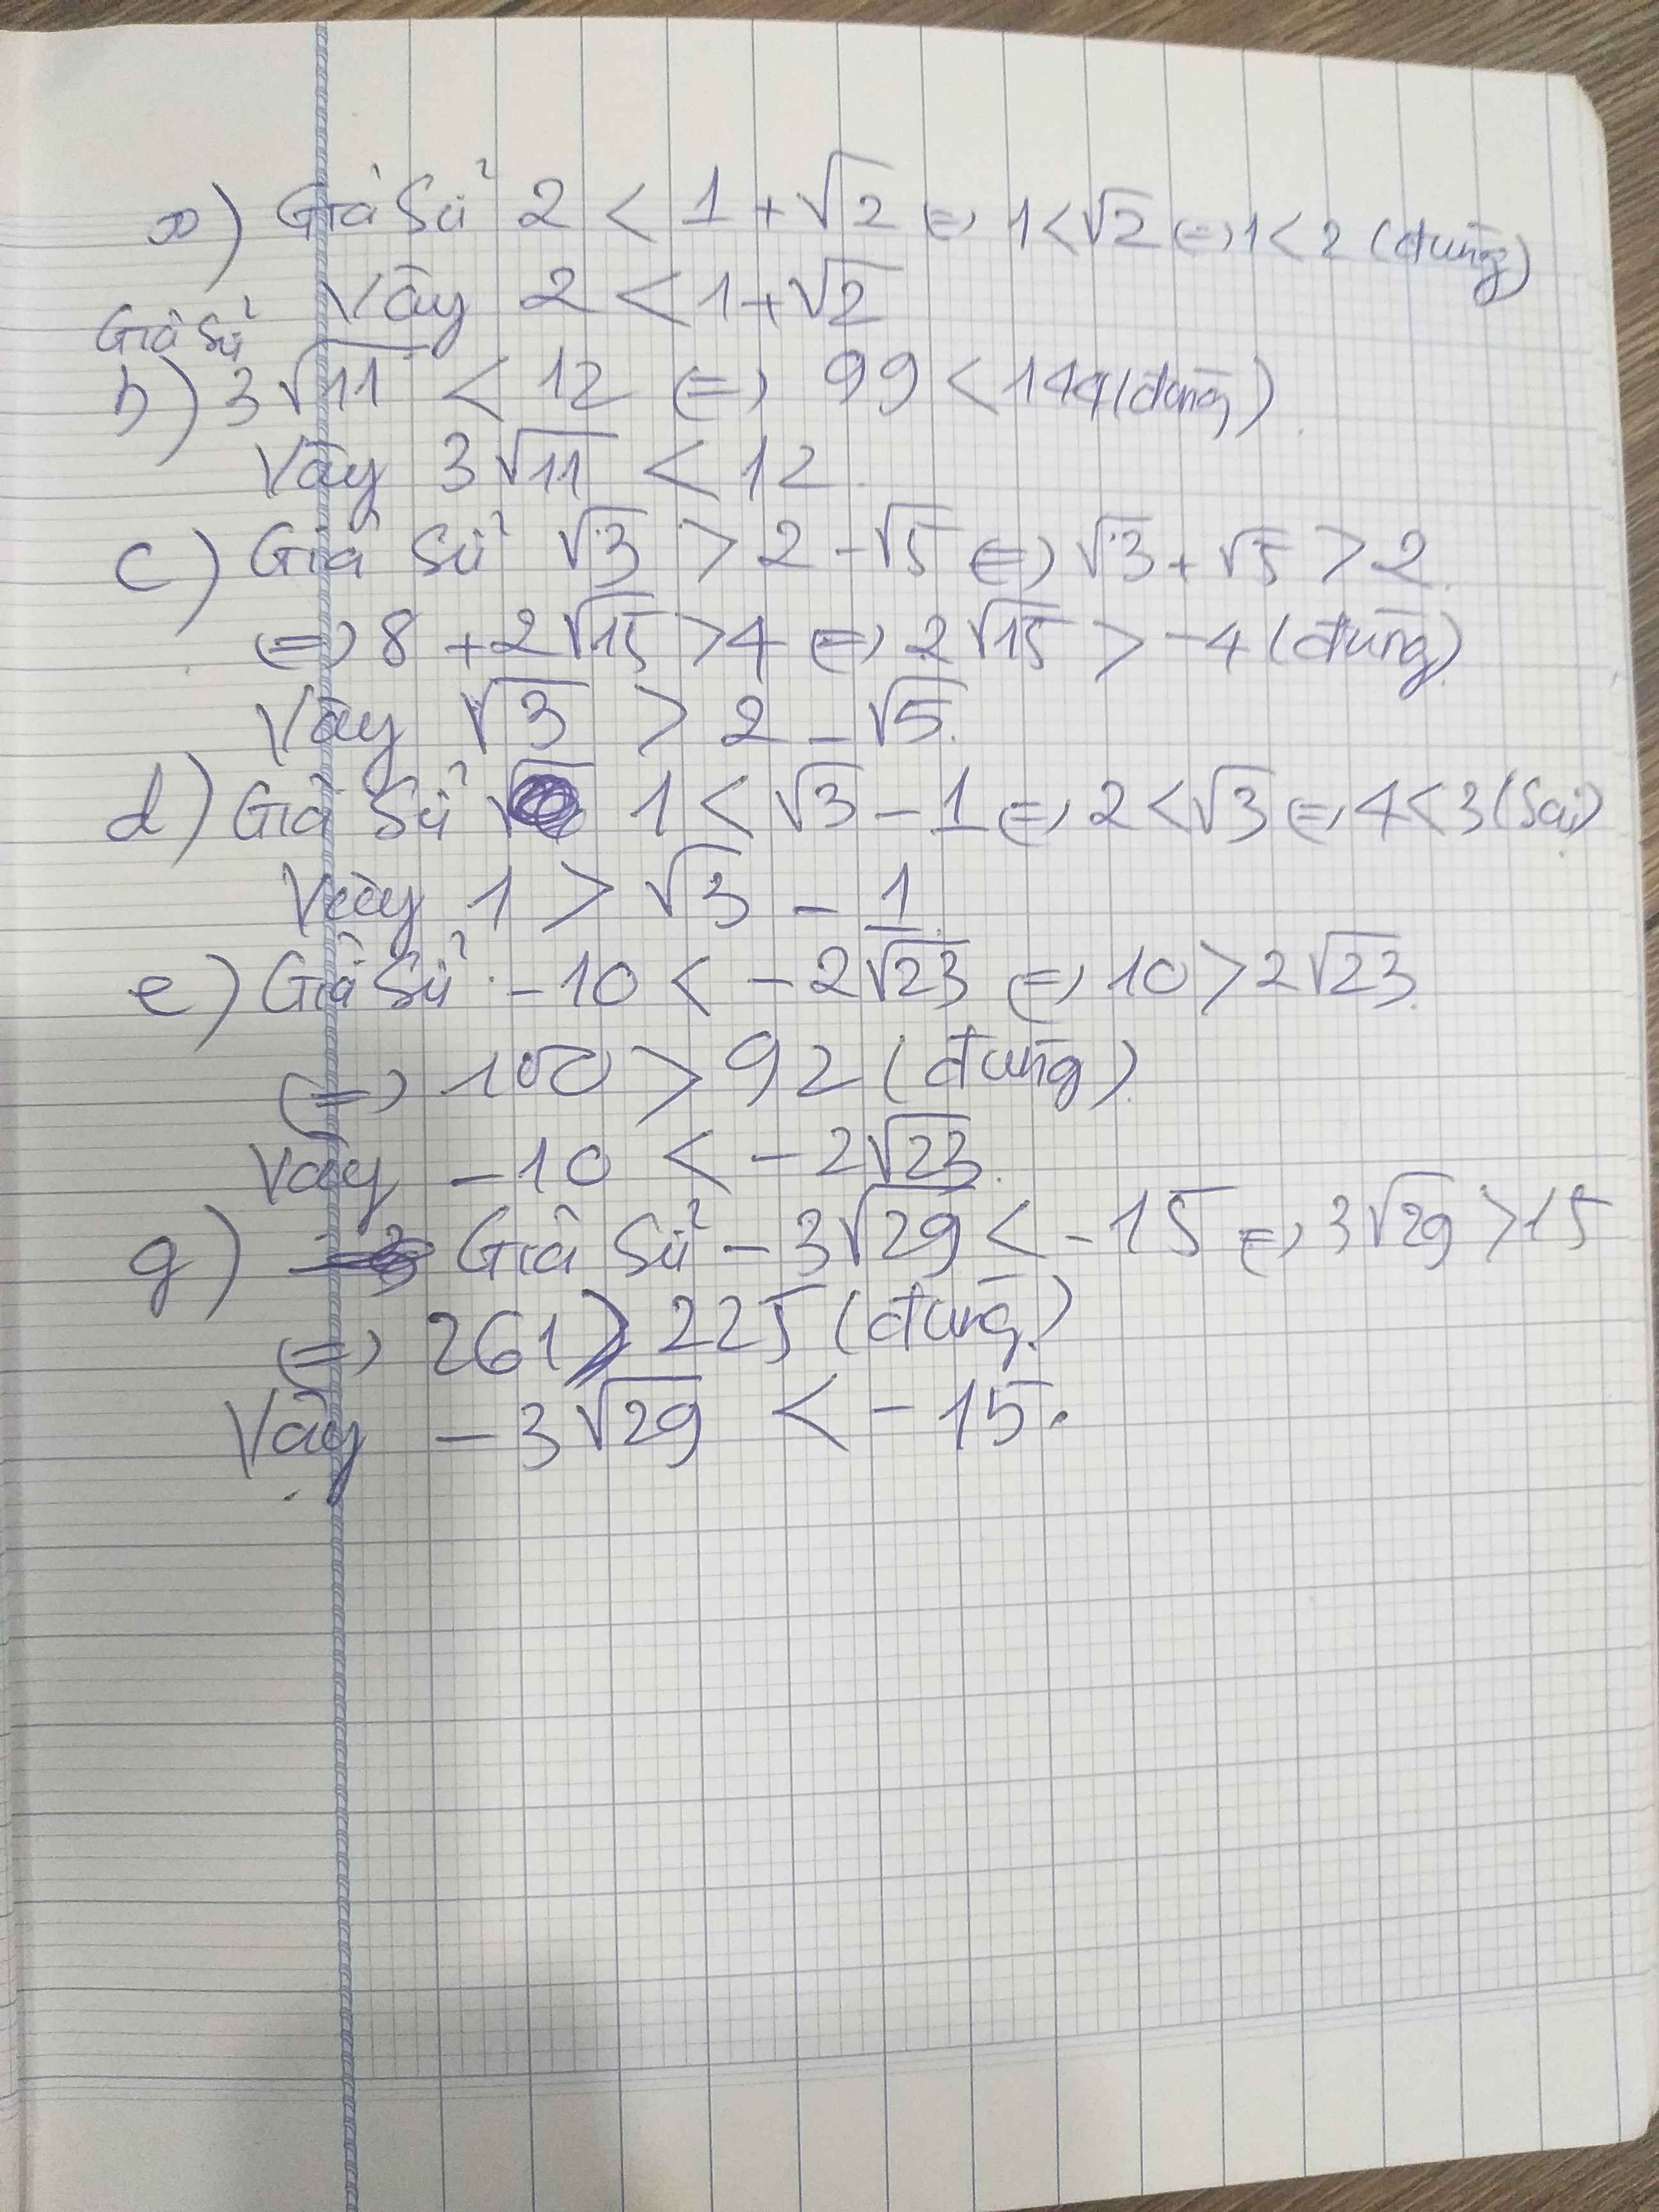 a) Giả sử 2 < 1 + √2 <=> 1 < √2 <=> 1 < 2 (đúng)
Vậy 2 < 1 + √2
Giả sử
b) 3√11 < 12 <=> 99 < 144 (đúng)
Vậy 3√11 < 12.
c) Giả sử √3 > 2 - √5 <=> √3 + √5 > 2.
<=> 8 + 2√15 > 4 <=> 2√15 > -4 (đúng)
Vậy √3 > 2 - √5.
d) Giả sử 1 < √3 - 1 <=> 2 < √3 <=> 4 < 3 (Sai)
Vậy 1 > √3 - 1.
e) Giả sử -10 < -2√23 <=> 10 > 2√23.
<=> 100 > 92 (đúng).
Vậy -10 < -2√23.
g) Giả sử -3√29 < -15 <=> 3√29 > 15
<=> 261 > 225 (đúng)
Vậy -3√29 < -15.